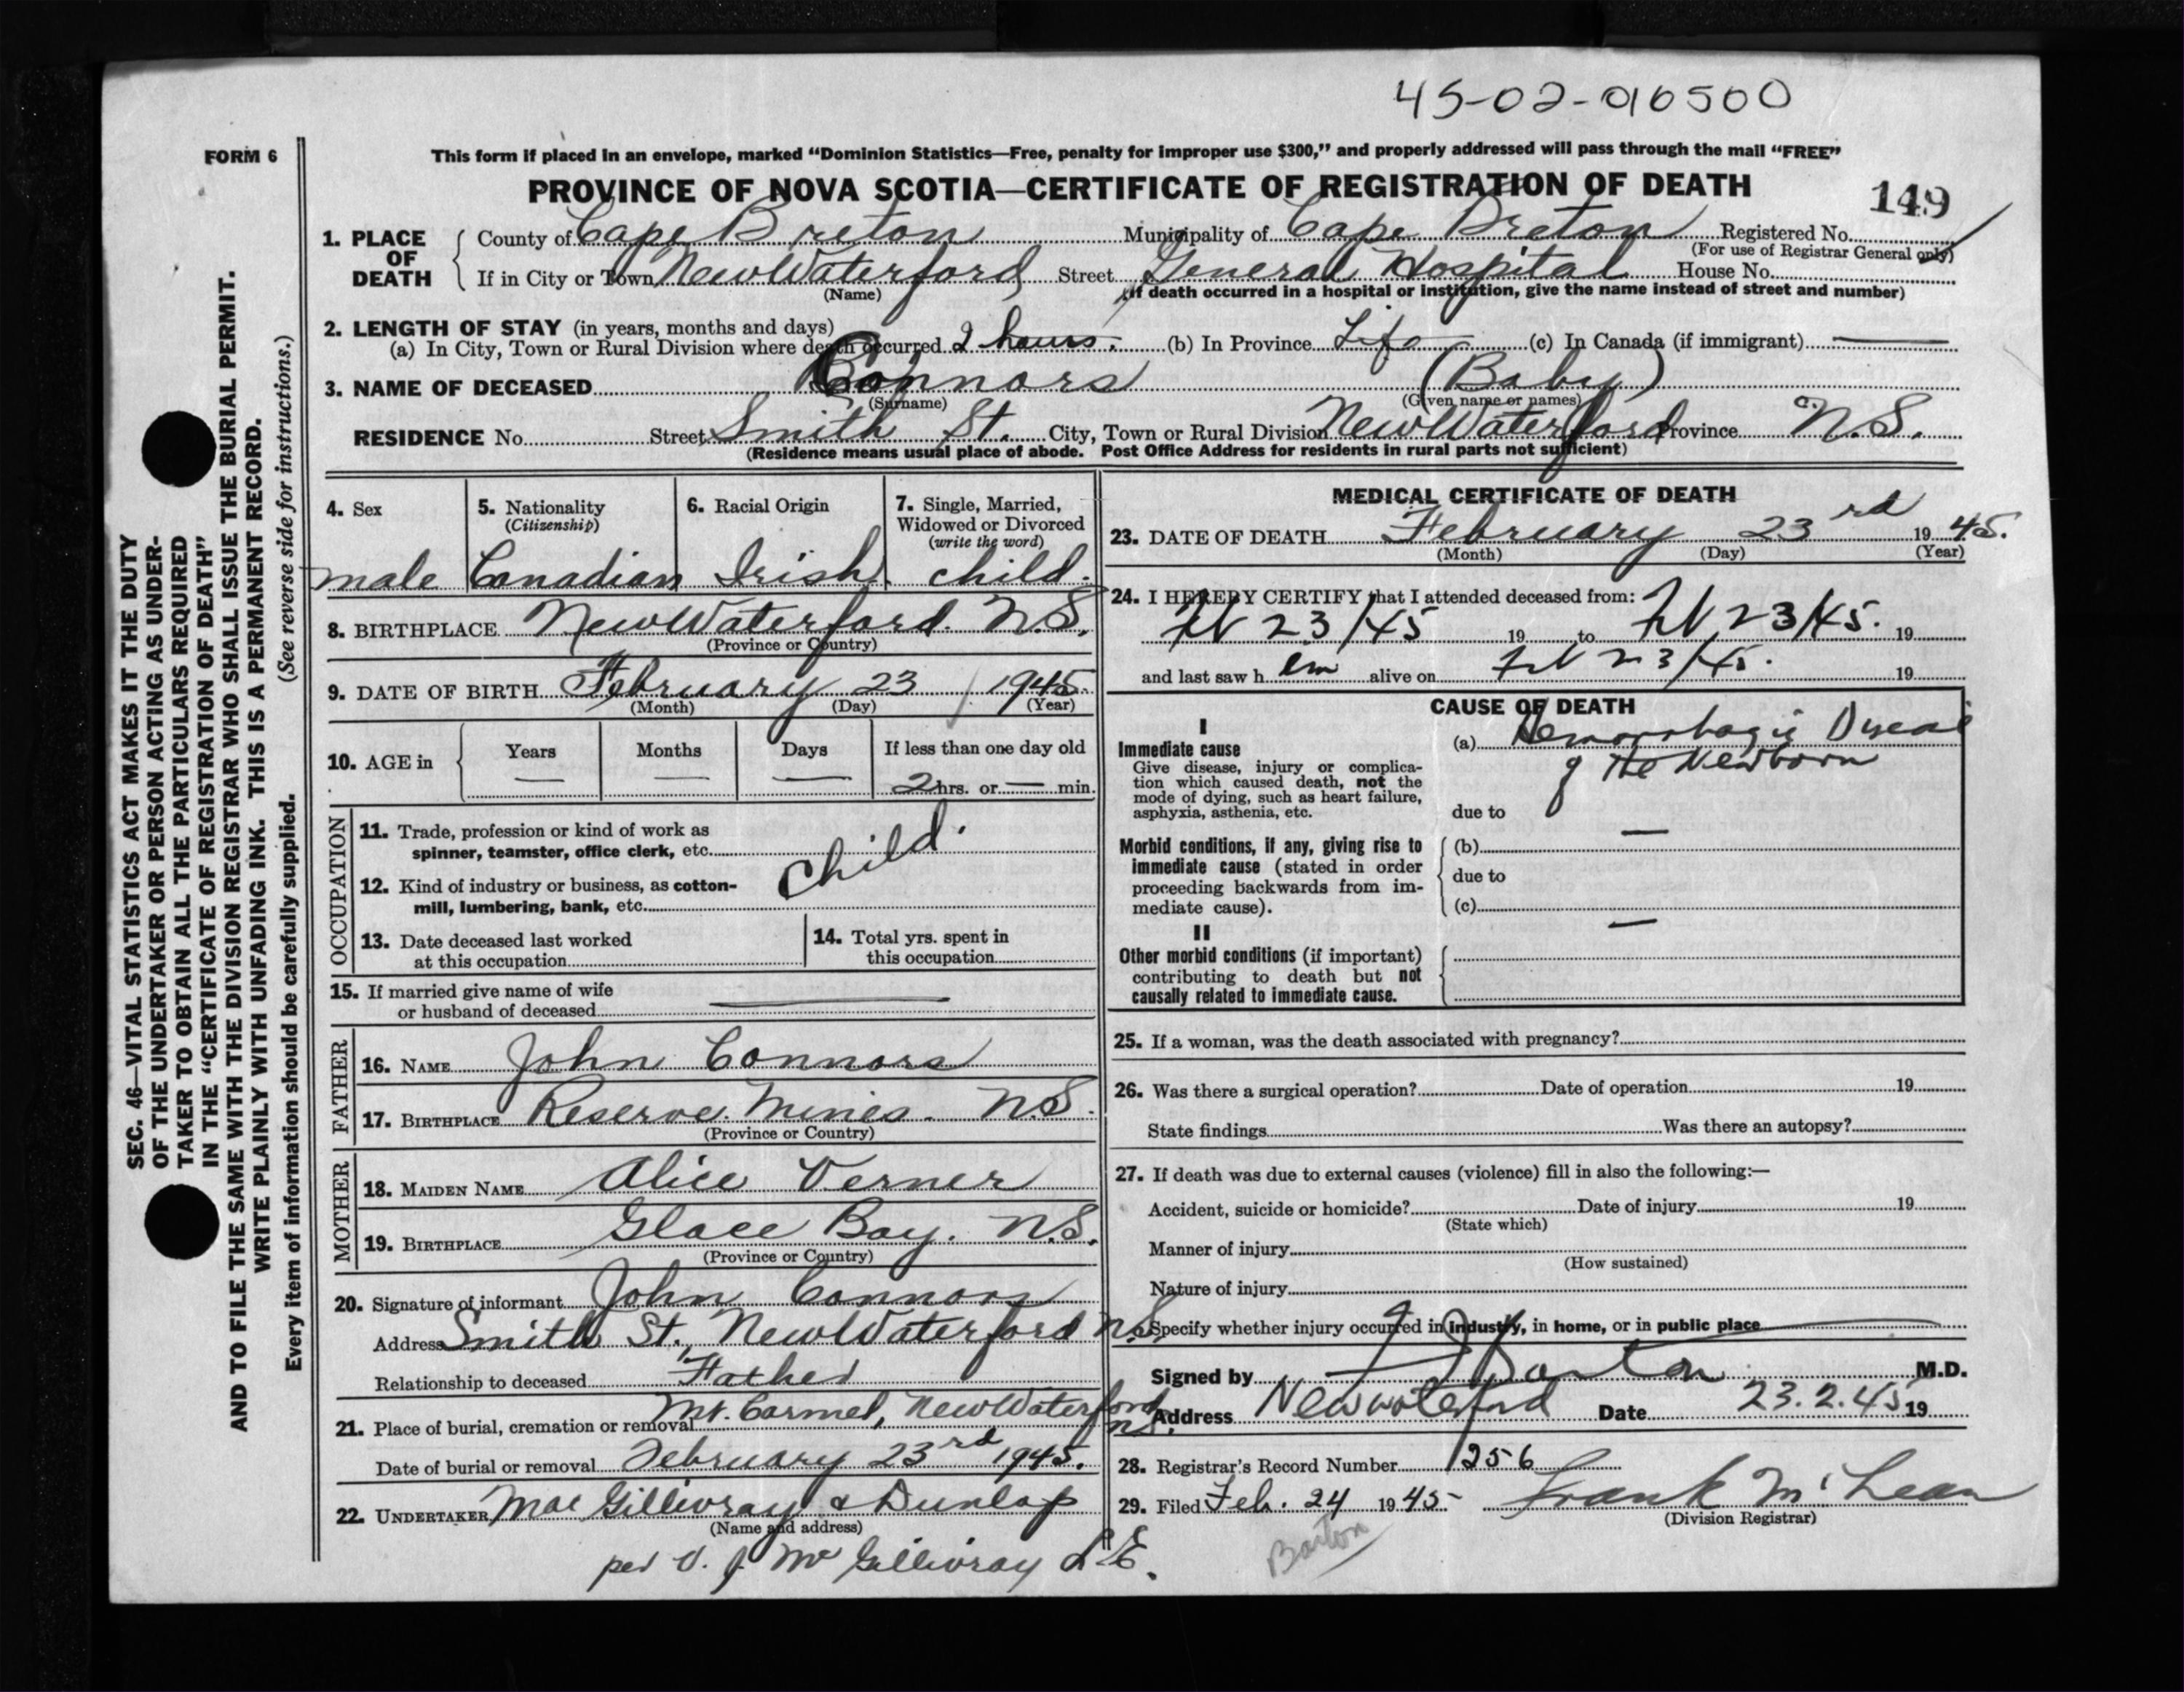 45-02-016500
FORM 6
This form if placed in an envelope, marked "Dominion Statistics—Free, penalty for improper use $300," and properly addressed will pass through the mail "FREE"
PROVINCE OF NOVA SCOTIA—CERTIFICATE OF REGISTRATION OF DEATH
149
1. PLACE OF DEATH
County of Cape Breton Municipality of Cape Breton Registered No.
(For use of Registrar General only)
If in City or Town New Waterford Street General Hospital House No.
(Name) (If death occurred in a hospital or institution, give the name instead of street and number)
2. LENGTH OF STAY (in years, months and days)
(a) In City, Town or Rural Division where death occurred 2 hours. (b) In Province Life (c) In Canada (if immigrant) —
3. NAME OF DECEASED Connors (Baby)
(Surname) (Given name or names)
RESIDENCE No. Street Smith St. City, Town or Rural Division New Waterford Province N.S.
(Residence means usual place of abode. Post Office Address for residents in rural parts not sufficient)
SEC. 46—VITAL STATISTICS ACT MAKES IT THE DUTY
OF THE UNDERTAKER OR PERSON ACTING AS UNDER-
TAKER TO OBTAIN ALL THE PARTICULARS REQUIRED
IN THE "CERTIFICATE OF REGISTRATION OF DEATH"
AND TO FILE THE SAME WITH THE DIVISION REGISTRAR WHO SHALL ISSUE THE BURIAL PERMIT.
WRITE PLAINLY WITH UNFADING INK. THIS IS A PERMANENT RECORD.
Every item of information should be carefully supplied. (See reverse side for instructions.)
4. Sex
male
5. Nationality
(Citizenship)
Canadian
6. Racial Origin
Irish
7. Single, Married,
Widowed or Divorced
(write the word)
child.
8. BIRTHPLACE New Waterford. N.S.
(Province or Country)
9. DATE OF BIRTH February 23 1945.
(Month) (Day) (Year)
10. AGE in
Years — Months — Days — If less than one day old
2 hrs. or — min.
OCCUPATION
11. Trade, profession or kind of work as
spinner, teamster, office clerk, etc.
child.
12. Kind of industry or business, as cotton-
mill, lumbering, bank, etc.
13. Date deceased last worked
at this occupation
14. Total yrs. spent in
this occupation
15. If married give name of wife
or husband of deceased —
FATHER
16. NAME John Connors
17. BIRTHPLACE Reserve Mines. N.S.
(Province or Country)
MOTHER
18. MAIDEN NAME Alice Verner
19. BIRTHPLACE Glace Bay. N.S.
(Province or Country)
20. Signature of informant John Connors
Address Smith St., New Waterford N.S.
Relationship to deceased Father
21. Place of burial, cremation or removal Mt. Carmel, New Waterford N.S.
Date of burial or removal February 23rd 1945.
22. UNDERTAKER Mac Gillivray & Dunlap
(Name and address)
per V. J. Mc Gillivray L.E.
MEDICAL CERTIFICATE OF DEATH
23. DATE OF DEATH February 23rd 1945.
(Month) (Day) (Year)
24. I HEREBY CERTIFY that I attended deceased from:
Feb 23/45 19 to Feb 23/45. 19
and last saw h im alive on Feb 23/45. 19
CAUSE OF DEATH
I
Immediate cause
Give disease, injury or complica-
tion which caused death, not the
mode of dying, such as heart failure,
asphyxia, asthenia, etc.
(a) Hemorrhagic Diseas
of The Newborn
due to
—
Morbid conditions, if any, giving rise to
immediate cause (stated in order
proceeding backwards from im-
mediate cause).
(b)
due to
(c)
—
II
Other morbid conditions (if important)
contributing to death but not
causally related to immediate cause.
25. If a woman, was the death associated with pregnancy?
26. Was there a surgical operation? Date of operation 19
State findings Was there an autopsy?
27. If death was due to external causes (violence) fill in also the following:—
Accident, suicide or homicide? Date of injury 19
(State which)
Manner of injury
(How sustained)
Nature of injury
Specify whether injury occurred in industry, in home, or in public place
Signed by Barton M.D.
Address New Waterford Date 23.2.45 19
28. Registrar's Record Number 1256
29. Filed Feb. 24 1945 Frank McLean
(Division Registrar)
Barton